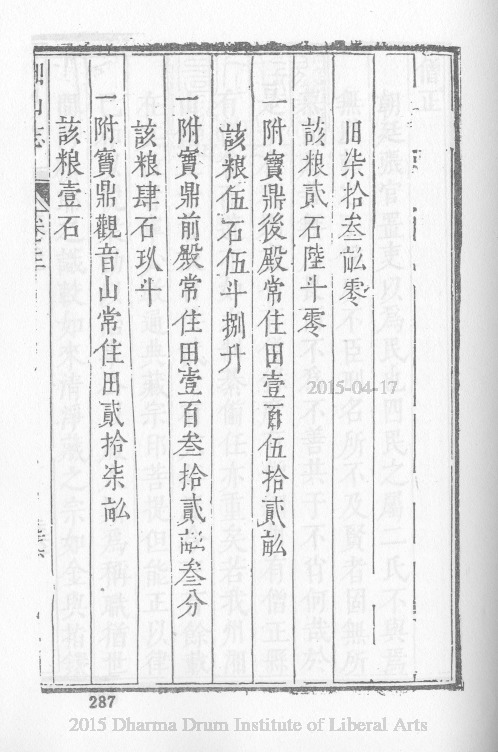 旧柒拾叁畆零
該粮貳石陸斗零
一附寶鼎後殿常住田壹百伍拾貳畆
該粮伍石伍斗捌升
一附寶鼎前殿常住田壹百叁拾貳畆叁分
該粮肆石玖斗
一附寶鼎觀音山常住田貳拾柒畆
該粮壹石
山志
287
2015-04-17
2015 Dharma Drum Institute of Liberal Arts